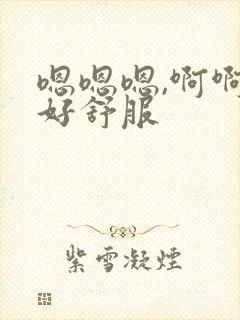 嗯嗯嗯,啊啊
好舒服
紫雪凝煙